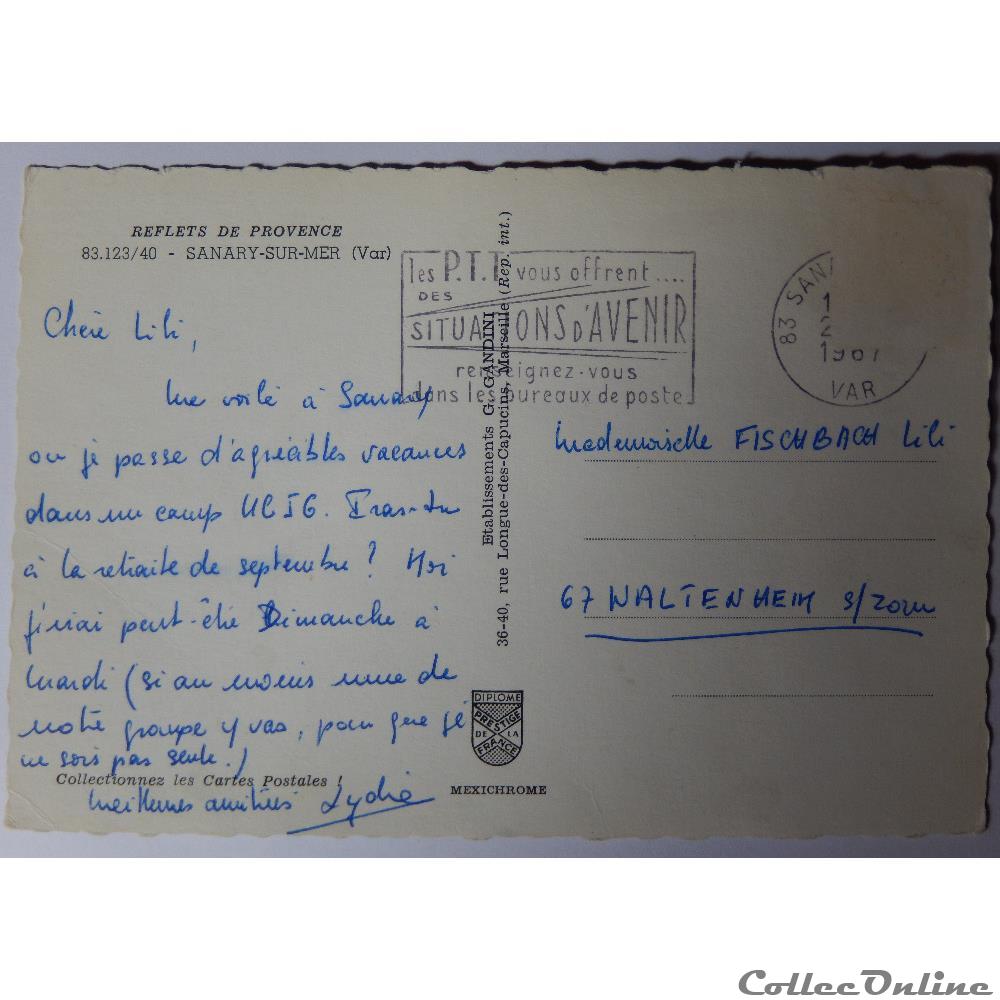 REFLETS DE PROVENCE
83.123/40 - SANARY-SUR-MER (Var)
Chère Lili,
Me voilà à Sanary
ou je passe d'agréables vacances
dans un camp UCJG. Iras-tu
à la retraite de septembre? Moi
j'irai peut-être Dimanche à
Mardi (si au moins une de
notre groupe y vas, pour que je
ne sois pas seule.)
Collectionnez les Cartes Postales !
Meilleures amitiés Lydie
les P.T.T vous offrent....
DES
SITUATIONS D'AVENIR
renseignez-vous
dans les bureaux de poste
Etablissements G. GANDINI
36-40, rue Longue-des-Capucins, Marseille (Rep. int.)
DIPLOME
PRESTIGE
DE LA
FRANCE
MEXICHROME
83 SANA
1
2
1967
VAR
Mademoiselle FISCHBACH Lili
67 WALTENHEIM s/Zorn
CollecOnline